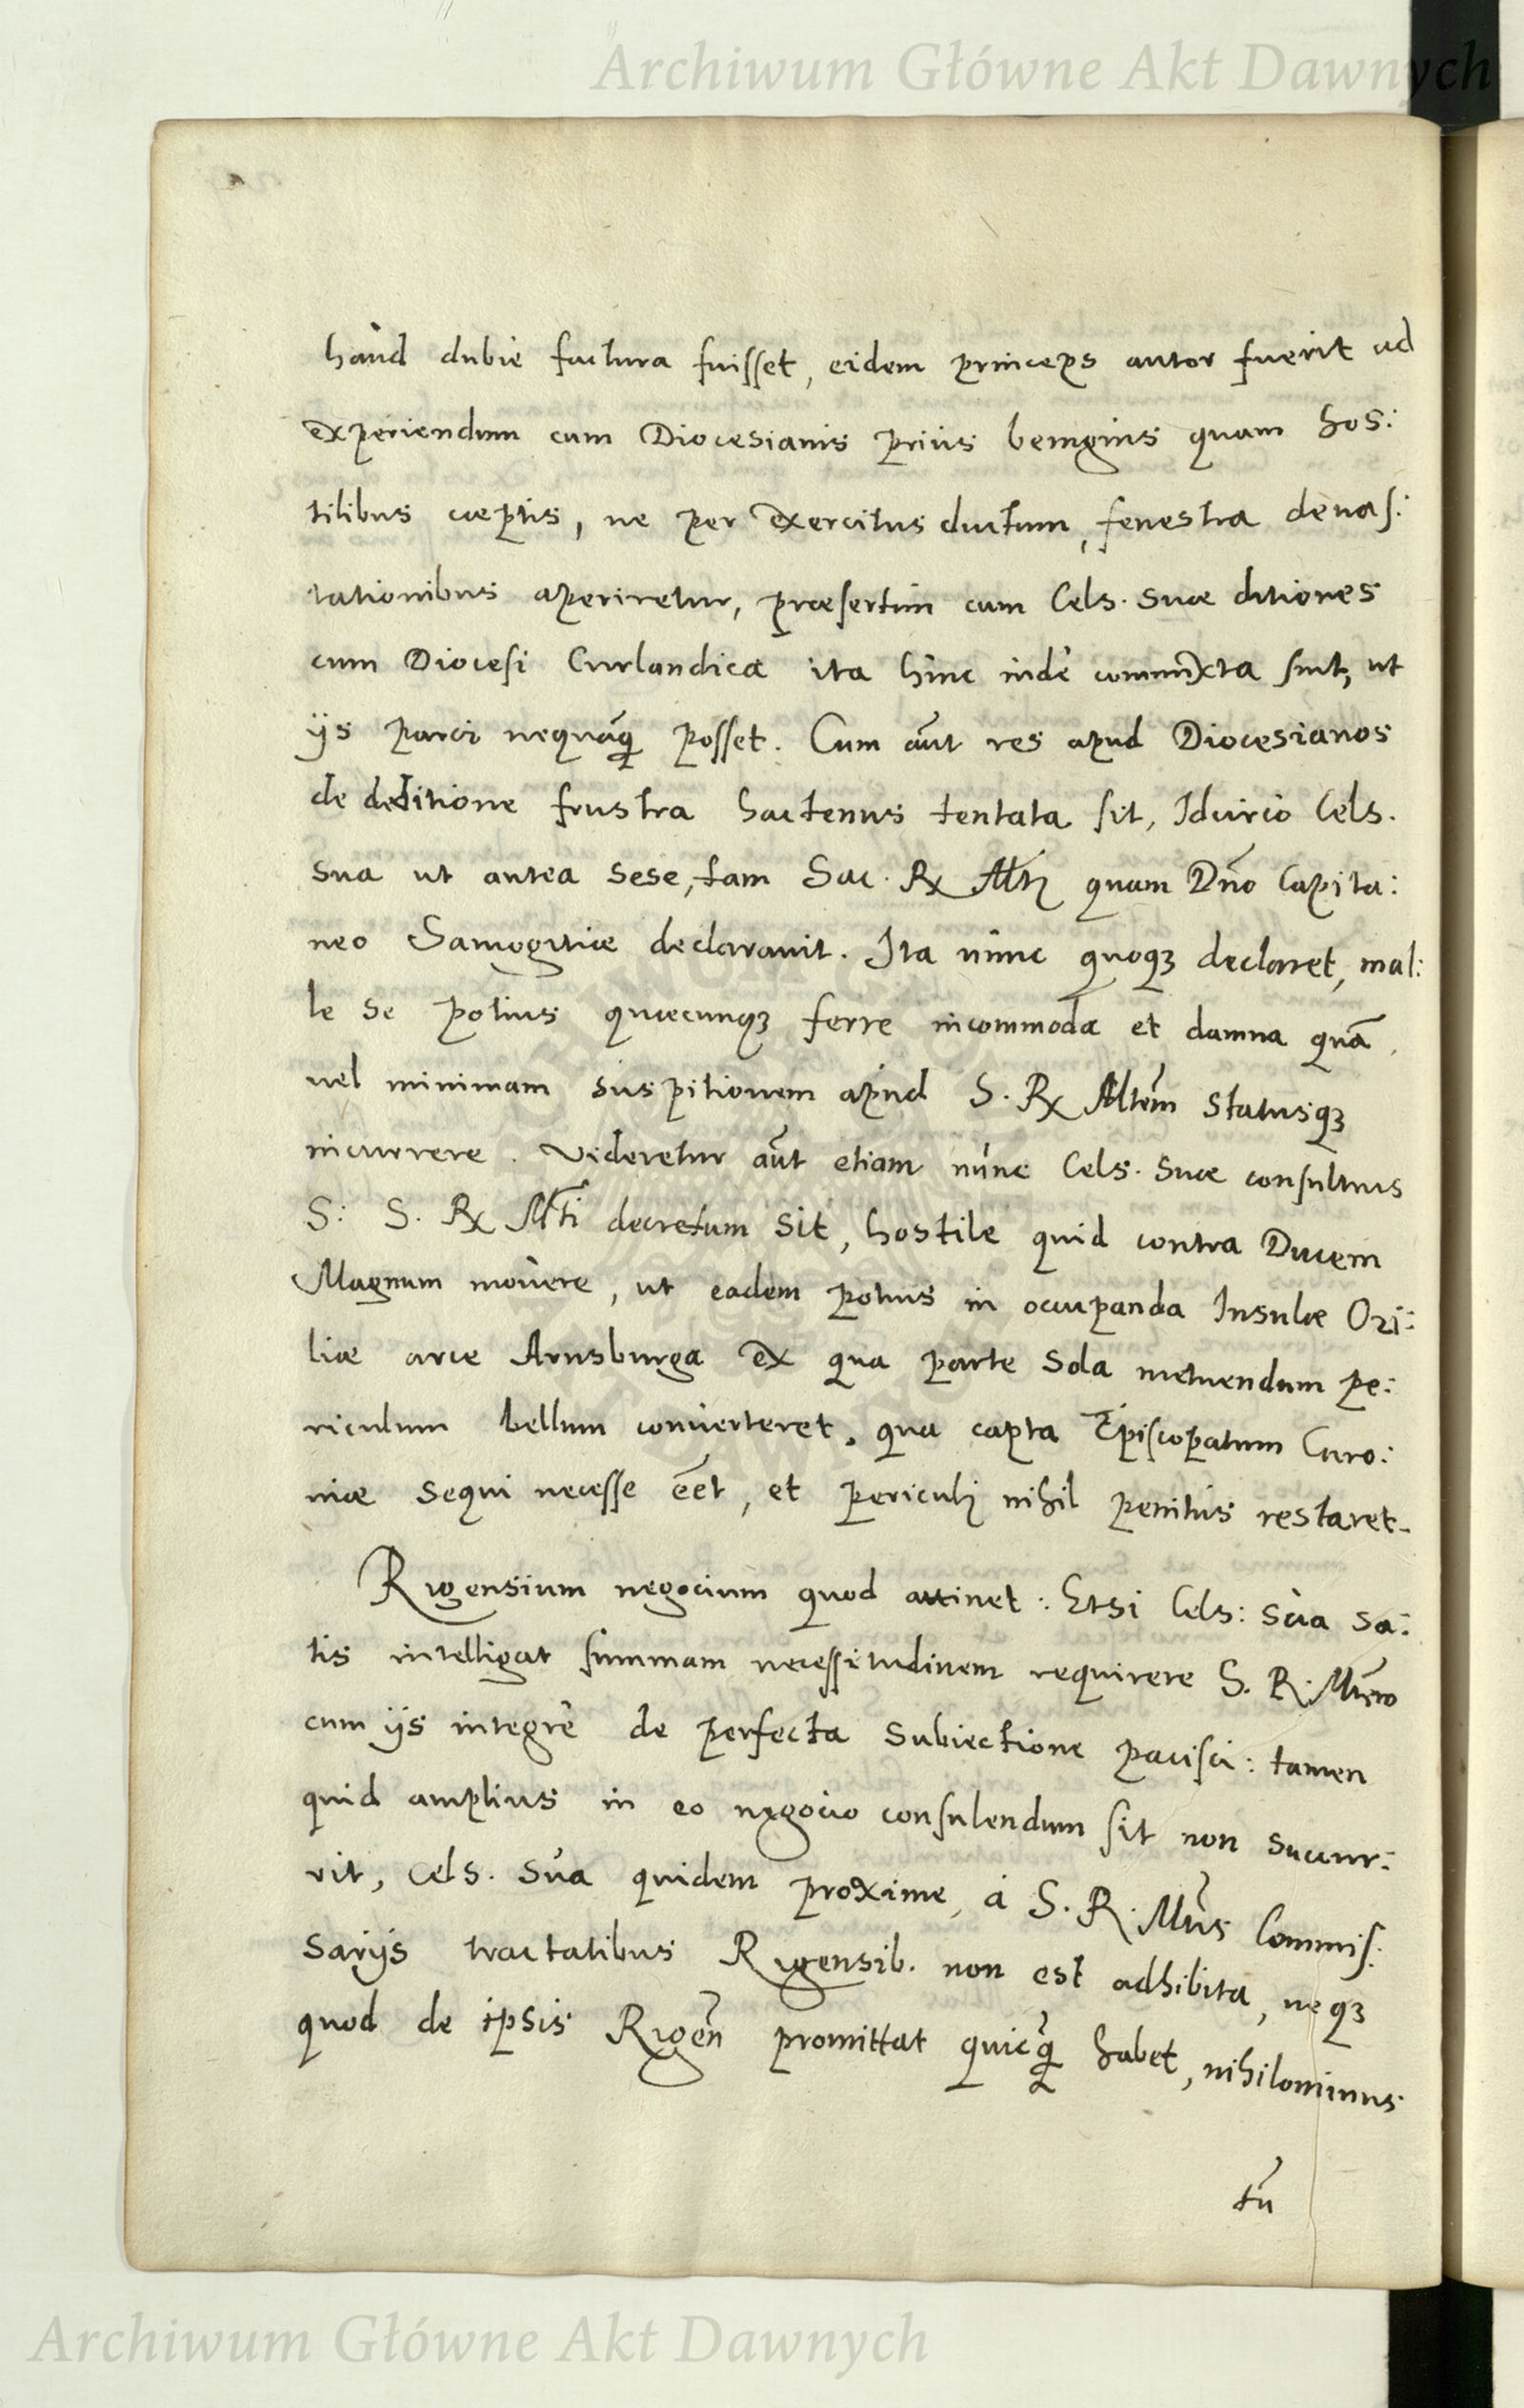 Archiwum Główne Akt Dawnych
haud dubie factura fuisset, eidem princeps autor fuerit ad
experiendum cum Diocesianis prius benignius quam hos:
tilibus cæptis, ne per exercitus ductum, fenestra deuas:
tationibus aperiretur, præsertim cum Cels. Suæ ditiones
cum Diocesi Curlandica ita hinc indè commixta sint, ut
ijs parci nequaq̃ posset. Cum aũt res apud Diocesianos
de deditione frustra hactenus tentata sit, Idcirco Cels.
Sua ut antea sese, tam Sac. Rx Mti quam Dño Capita:
neo Samogitiæ declarauit. Ita nunc quoqꝫ declaret, mal:
le se potius quæcunqꝫ ferre incommoda et damna quã
uel minimam suspitionem apud S. Rx Mtem̃ Statusqꝫ
incurrere. Videretur aũt etiam nunc Cels. Suæ consultius
S: S. Rx Mti decretum sit, hostile quid contra Ducem
Magnum mouere, ut eadem potius in occupanda Insulæ Ozi:
liæ arce Arnsburga ex qua parte sola metuendum pe:
riculum bellum conuerteret. qua capta Episcopatum Curo:
niæ sequi necesse eẽt, et periculi nihil penitus restaret.
Rigensium negocium quod attinet: Etsi Cels: Sua sa:
tis intelligat summam necessitudinem requirere S. R.
cum ijs integrè de perfecta subiectione pacisci: tamen
quid amplius in eo negocio consulendum sit non succur:
rit, Cels. Sua quidem proxime, à S. R. Mtis Commis:
sarijs tractatibus Rigensib. non est adhibita, neqꝫ
quod de ipsis Rigeñ promittat quicq̃ habet, nihilominus
tñ
Archiwum Główne Akt Dawnych